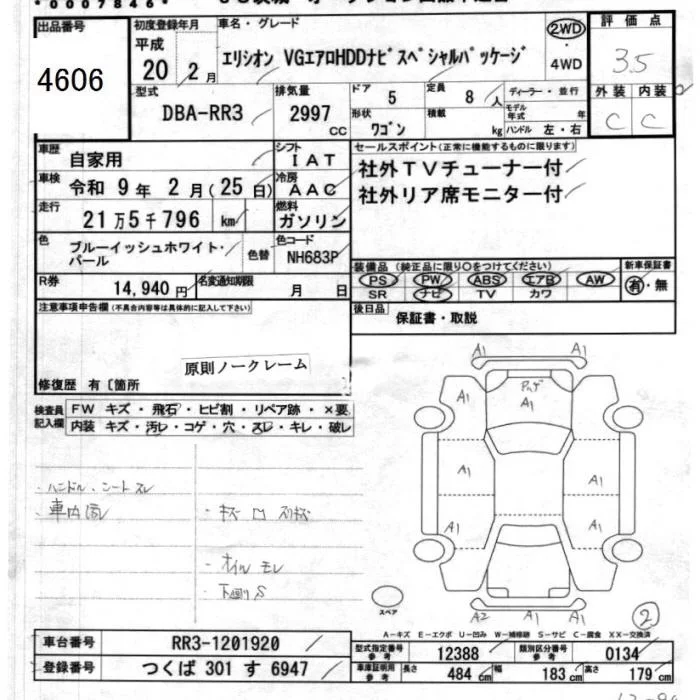 *0007846*
出品番号
4606
初度登録年月
平成
20 2月
車名・グレード
エリシオン VGエアロHDDナビスペシャルパッケージ
2WD
・
4WD
評価点
3.5
外装 内装
C C
型式
DBA-RR3
排気量
2997
cc
ドア
5
定員
8人
ディーラー・並行
形状
ワゴン
積載
kg
モデル年式 年
ハンドル 左・右
車歴
自家用
シフト
IAT
セールスポイント(正常に機能するものに限ります)
社外TVチューナー付
社外リア席モニター付
車検
令和 9年 2月(25日)
冷房
AAC
走行
21万5千796 km
燃料
ガソリン
色
ブルーイッシュホワイト・
パール
色替
色コード
NH683P
装備品(純正品に限り○をつけてください)
PS PW ABS エアB AW
SR ナビ TV カワ
新車保証書
有・無
R券
14,940円
名変通知期限
月 日
後日品
保証書・取説
注意事項申告欄(不具合内容等は具体的に記入して下さい)
原則ノークレーム
修復歴 有〔箇所
検査員
記入欄
FW キズ・飛石・ヒビ割・リペア跡・×要
内装 キズ・汚レ・コゲ・穴・スレ・キレ・破レ
・ハンドル、シートスレ
・オイルモレ
・下廻りS
A1 A1
A1
A1 A1
A1 A1
A1 A1
A2 A1
スペア
2
A−キズ E−エクボ U−凹み W−補修跡 S−サビ C−腐食 XX−交換済
車台番号
RR3-1201920
登録番号
つくば 301 す 6947
型式指定番号
参考
12388
類別区分番号
参考
0134
車庫証明用
参考
長さ
484 cm
幅
183 cm
高さ
179 cm